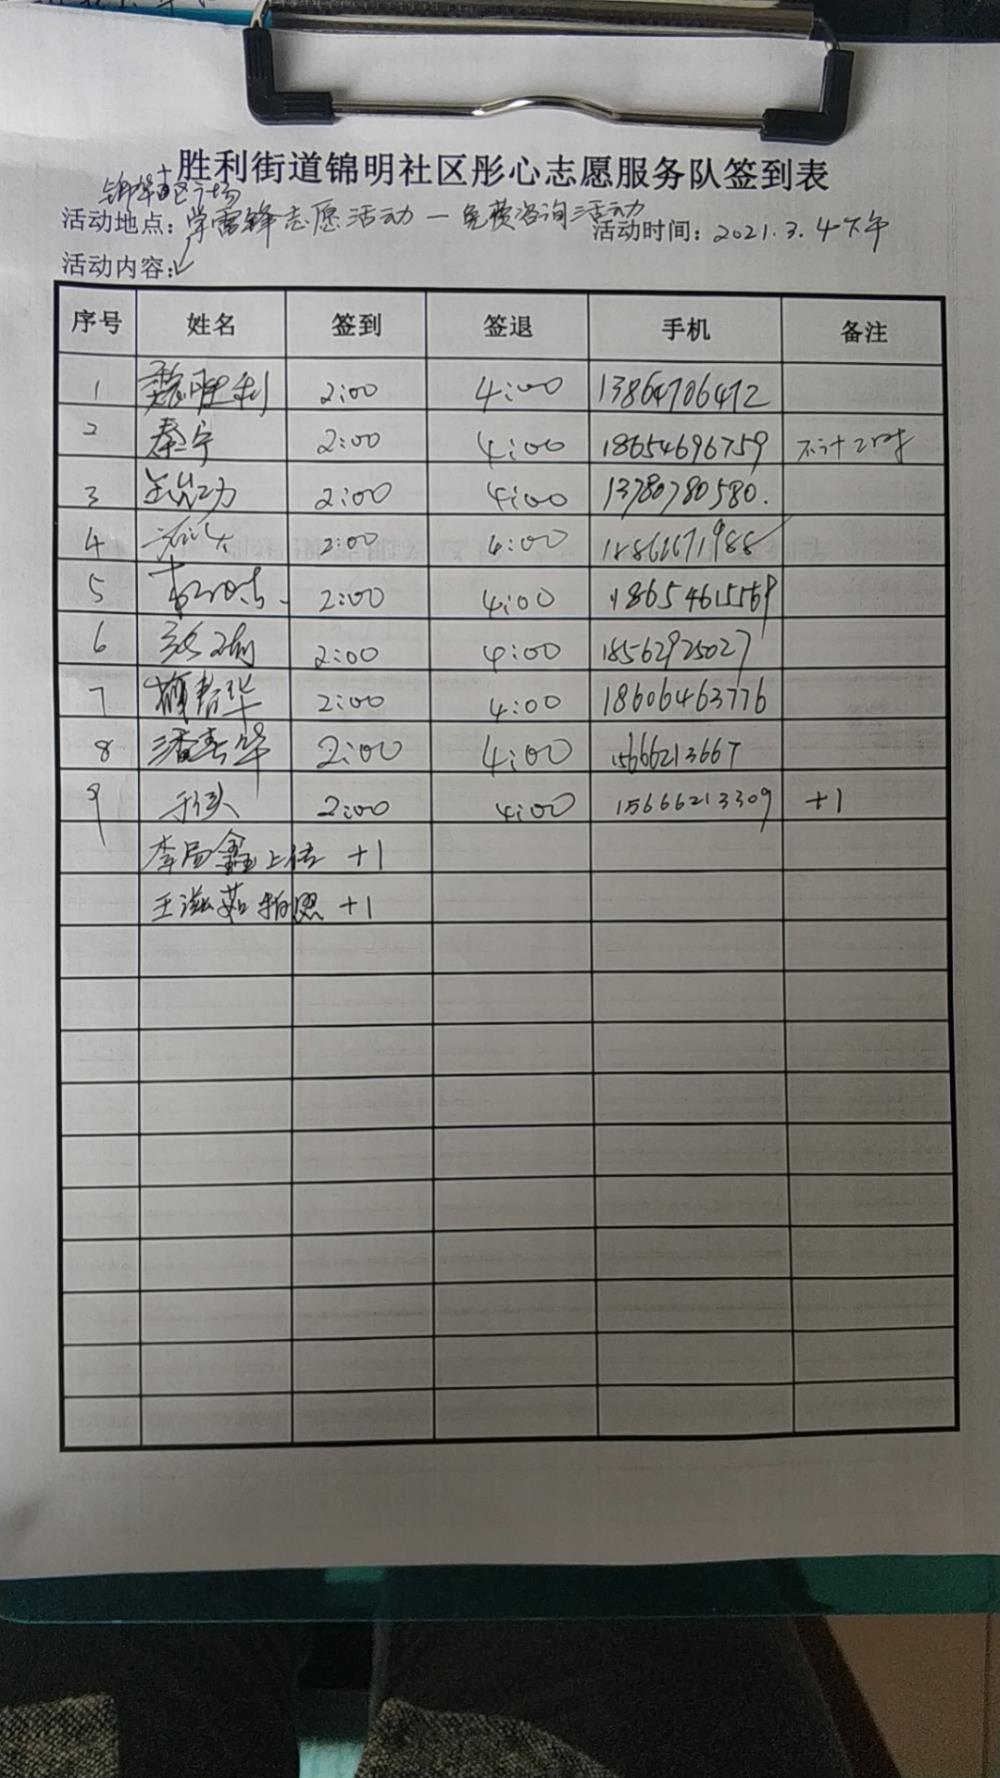 胜利街道锦明社区彤心志愿服务队签到表
锦华 区广场
活动地点：学雷锋志愿活动—免费咨询活动 活动时间：2021.3.4下午
活动内容：
序号 姓名 签到 签退 手机 备注
1 魏胜利 2:00 4:00 13864706472
2 秦宁 2:00 4:00 18654696759 不计工时
3 2:00 4:00 13780780580.
4 2:00 4:00
5 2:00 4:00 18654615569
6 2:00 4:00 18562925027
7 颜春华 2:00 4:00 18606463776
8 潘春华 2:00 4:00 15666213667
9 2:00 4:00 15666213309 +1
李局鑫上传 +1
王滋茹拍照 +1